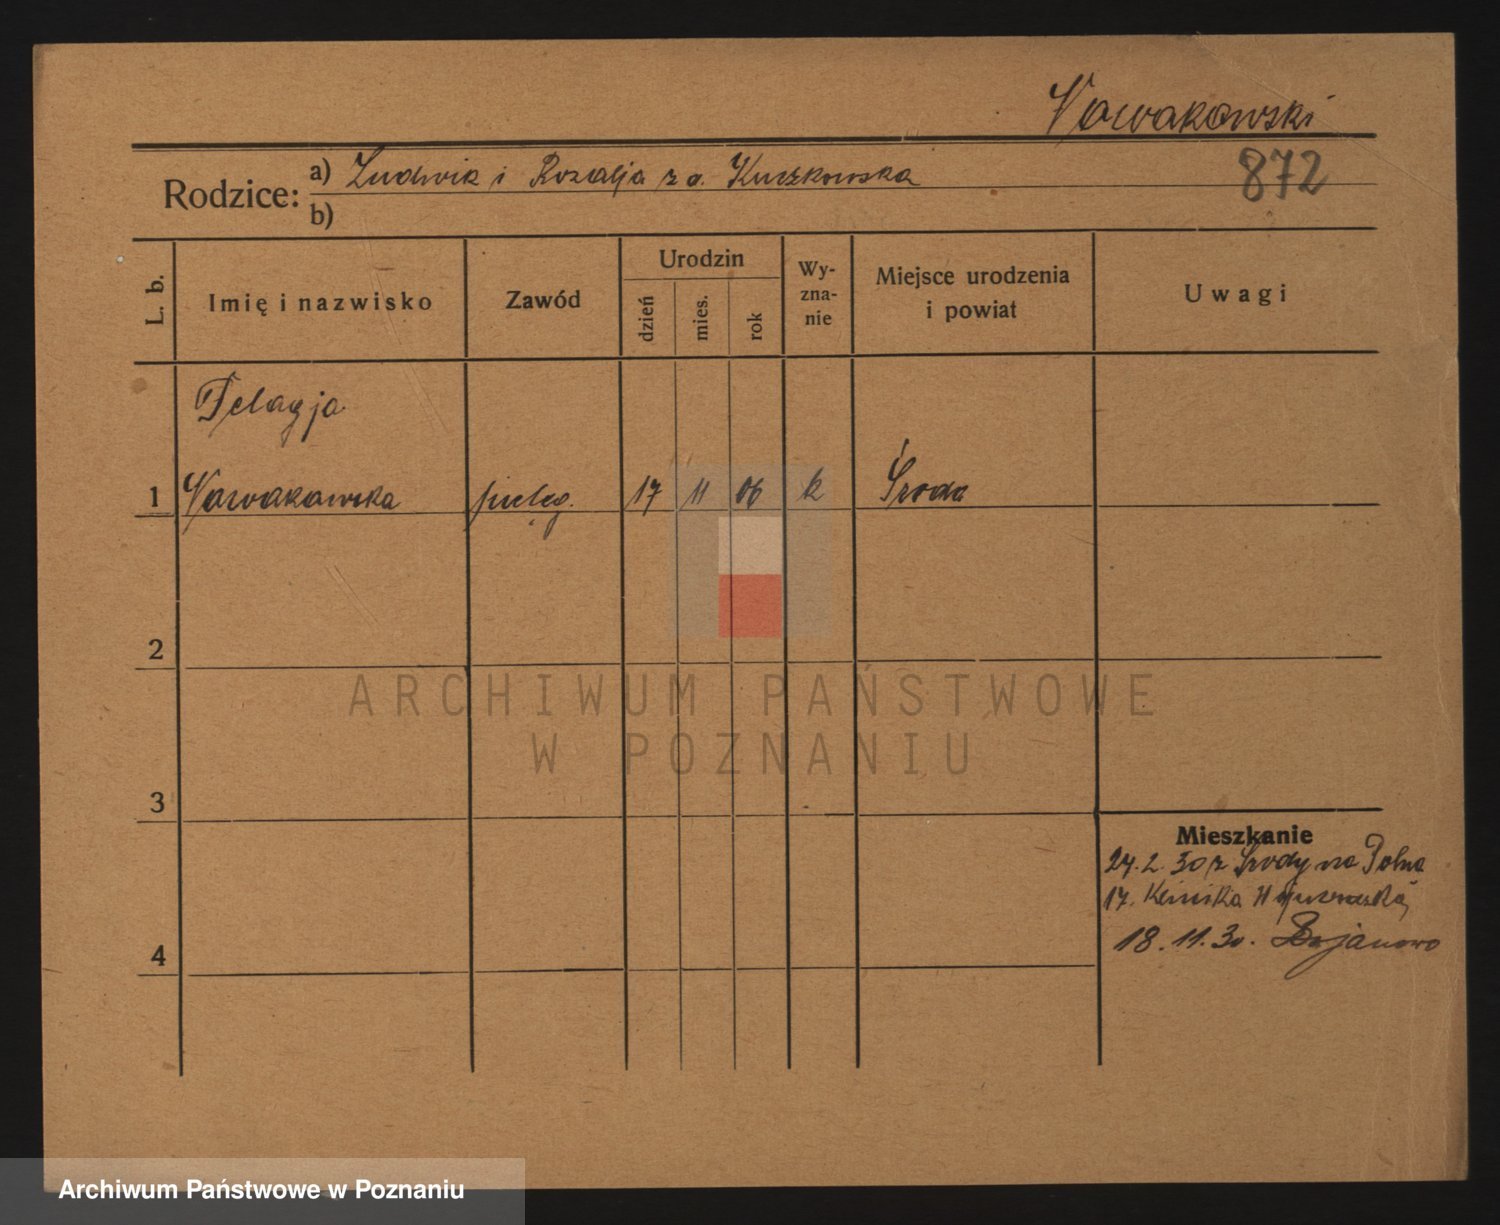 Nowakowski
872
Rodzice: a) Ludwik i Rozalja z d. Kuczkowska
b)
L. b.
Imię i nazwisko
Zawód
Urodzin
dzień
mies.
rok
Wy-
zna-
nie
Miejsce urodzenia
i powiat
Uwagi
Pelagja
1 Nowakowska pielęg. 17 11 06 k Środa
2
3
4
Mieszkanie
24. 2. 30 z Środy na Polna
17. Klinika
18. 11. 30. Bojanowo
ARCHIWUM PAŃSTWOWE
W POZNANIU
Archiwum Państwowe w Poznaniu